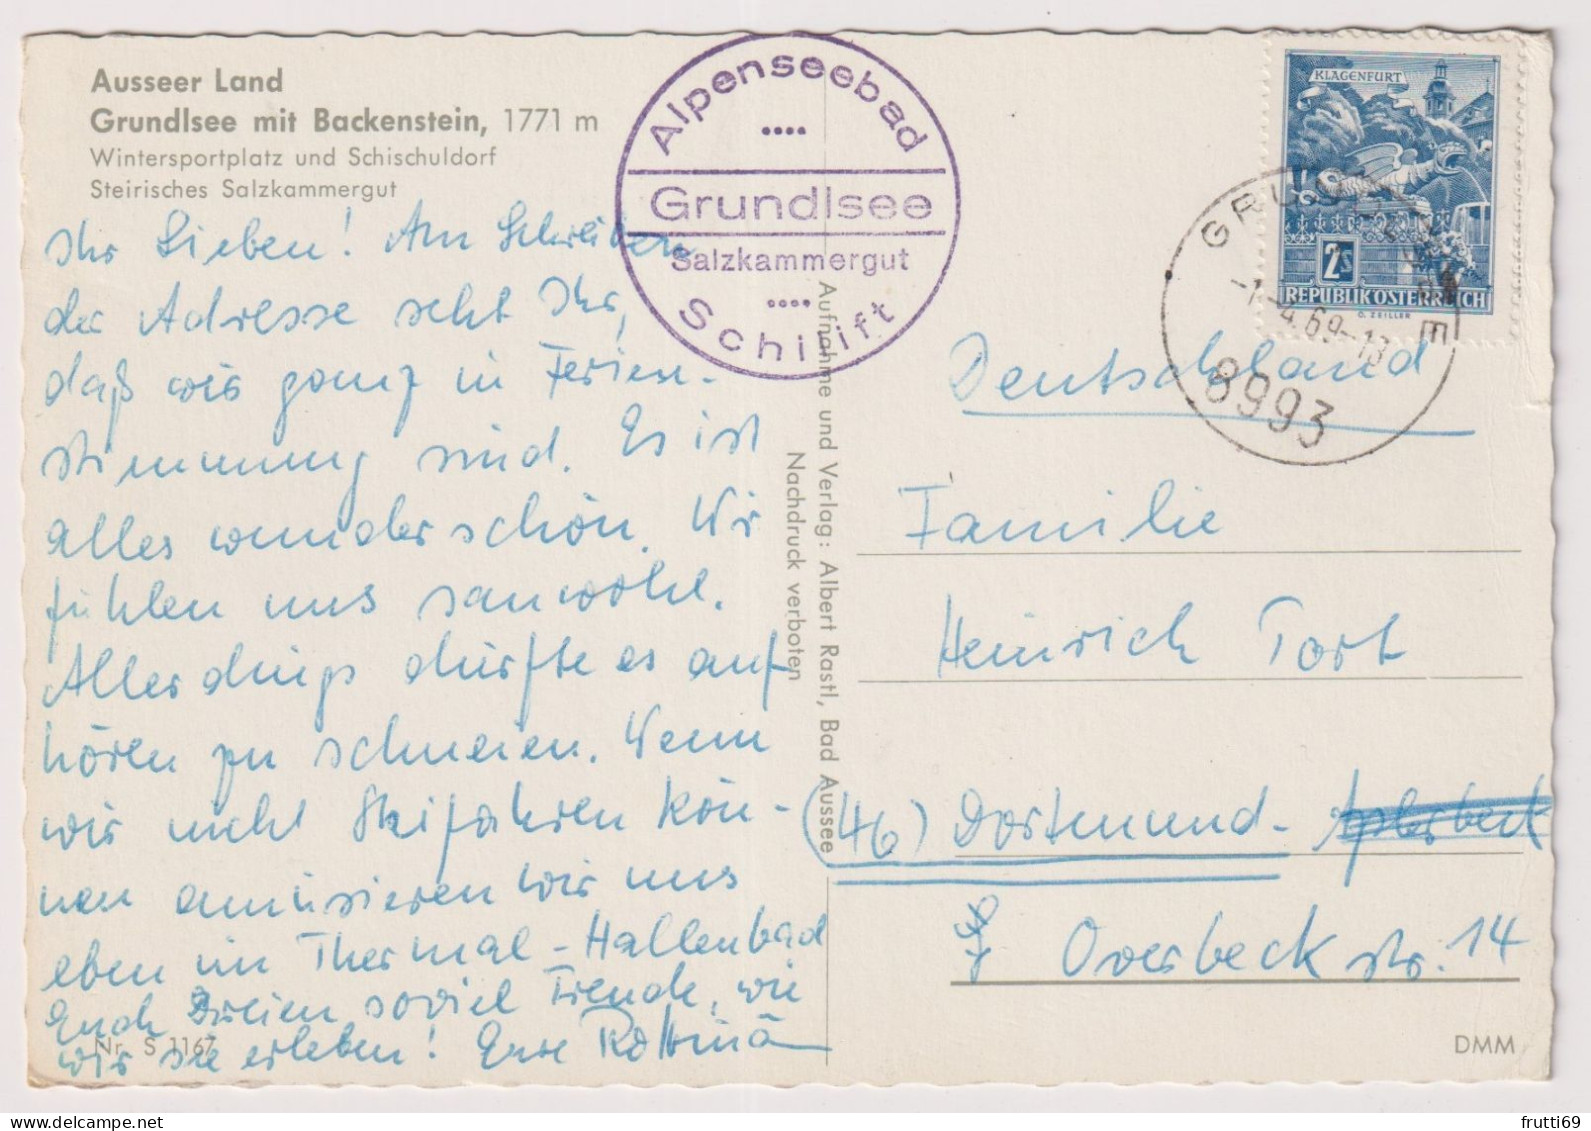 Ausseer Land
Grundlsee mit Backenstein, 1771 m
Wintersportplatz und Schischuldorf
Steirisches Salzkammergut
Alpenseebad
Grundlsee
Salzkammergut
Schilift
KLAGENFURT
2S
REPUBLIK ÖSTERREICH
O. ZEILLER
4.69-13
8993
Ihr Lieben! Am Schreiben
der Adresse seht Ihr,
daß wir ganz in Ferien-
stimmung sind. Es ist
alles wunderschön. Wir
fühlen uns sauwohl.
Allerdings dürfte es auf
hören zu schneien. Wenn
wir nicht Skifahren kön-
nen amüsieren wir uns
eben im Thermal-Hallenbad
Euch Dreien soviel Freude, wie
wir sie erleben! Eure
Nr. S 1167
Aufnahme und Verlag: Albert Rastl, Bad Aussee
Nachdruck verboten
Deutschland
Familie
Heinrich Tort
(46) Dortmund- Aplerbeck
Overbeckstr. 14
DMM
frutti69